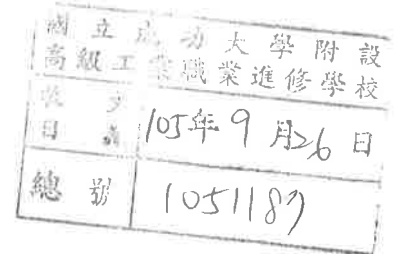 國立成功大學附設
高級工業職業進修學校
收文
日期 105年9月26日
總號 1051187